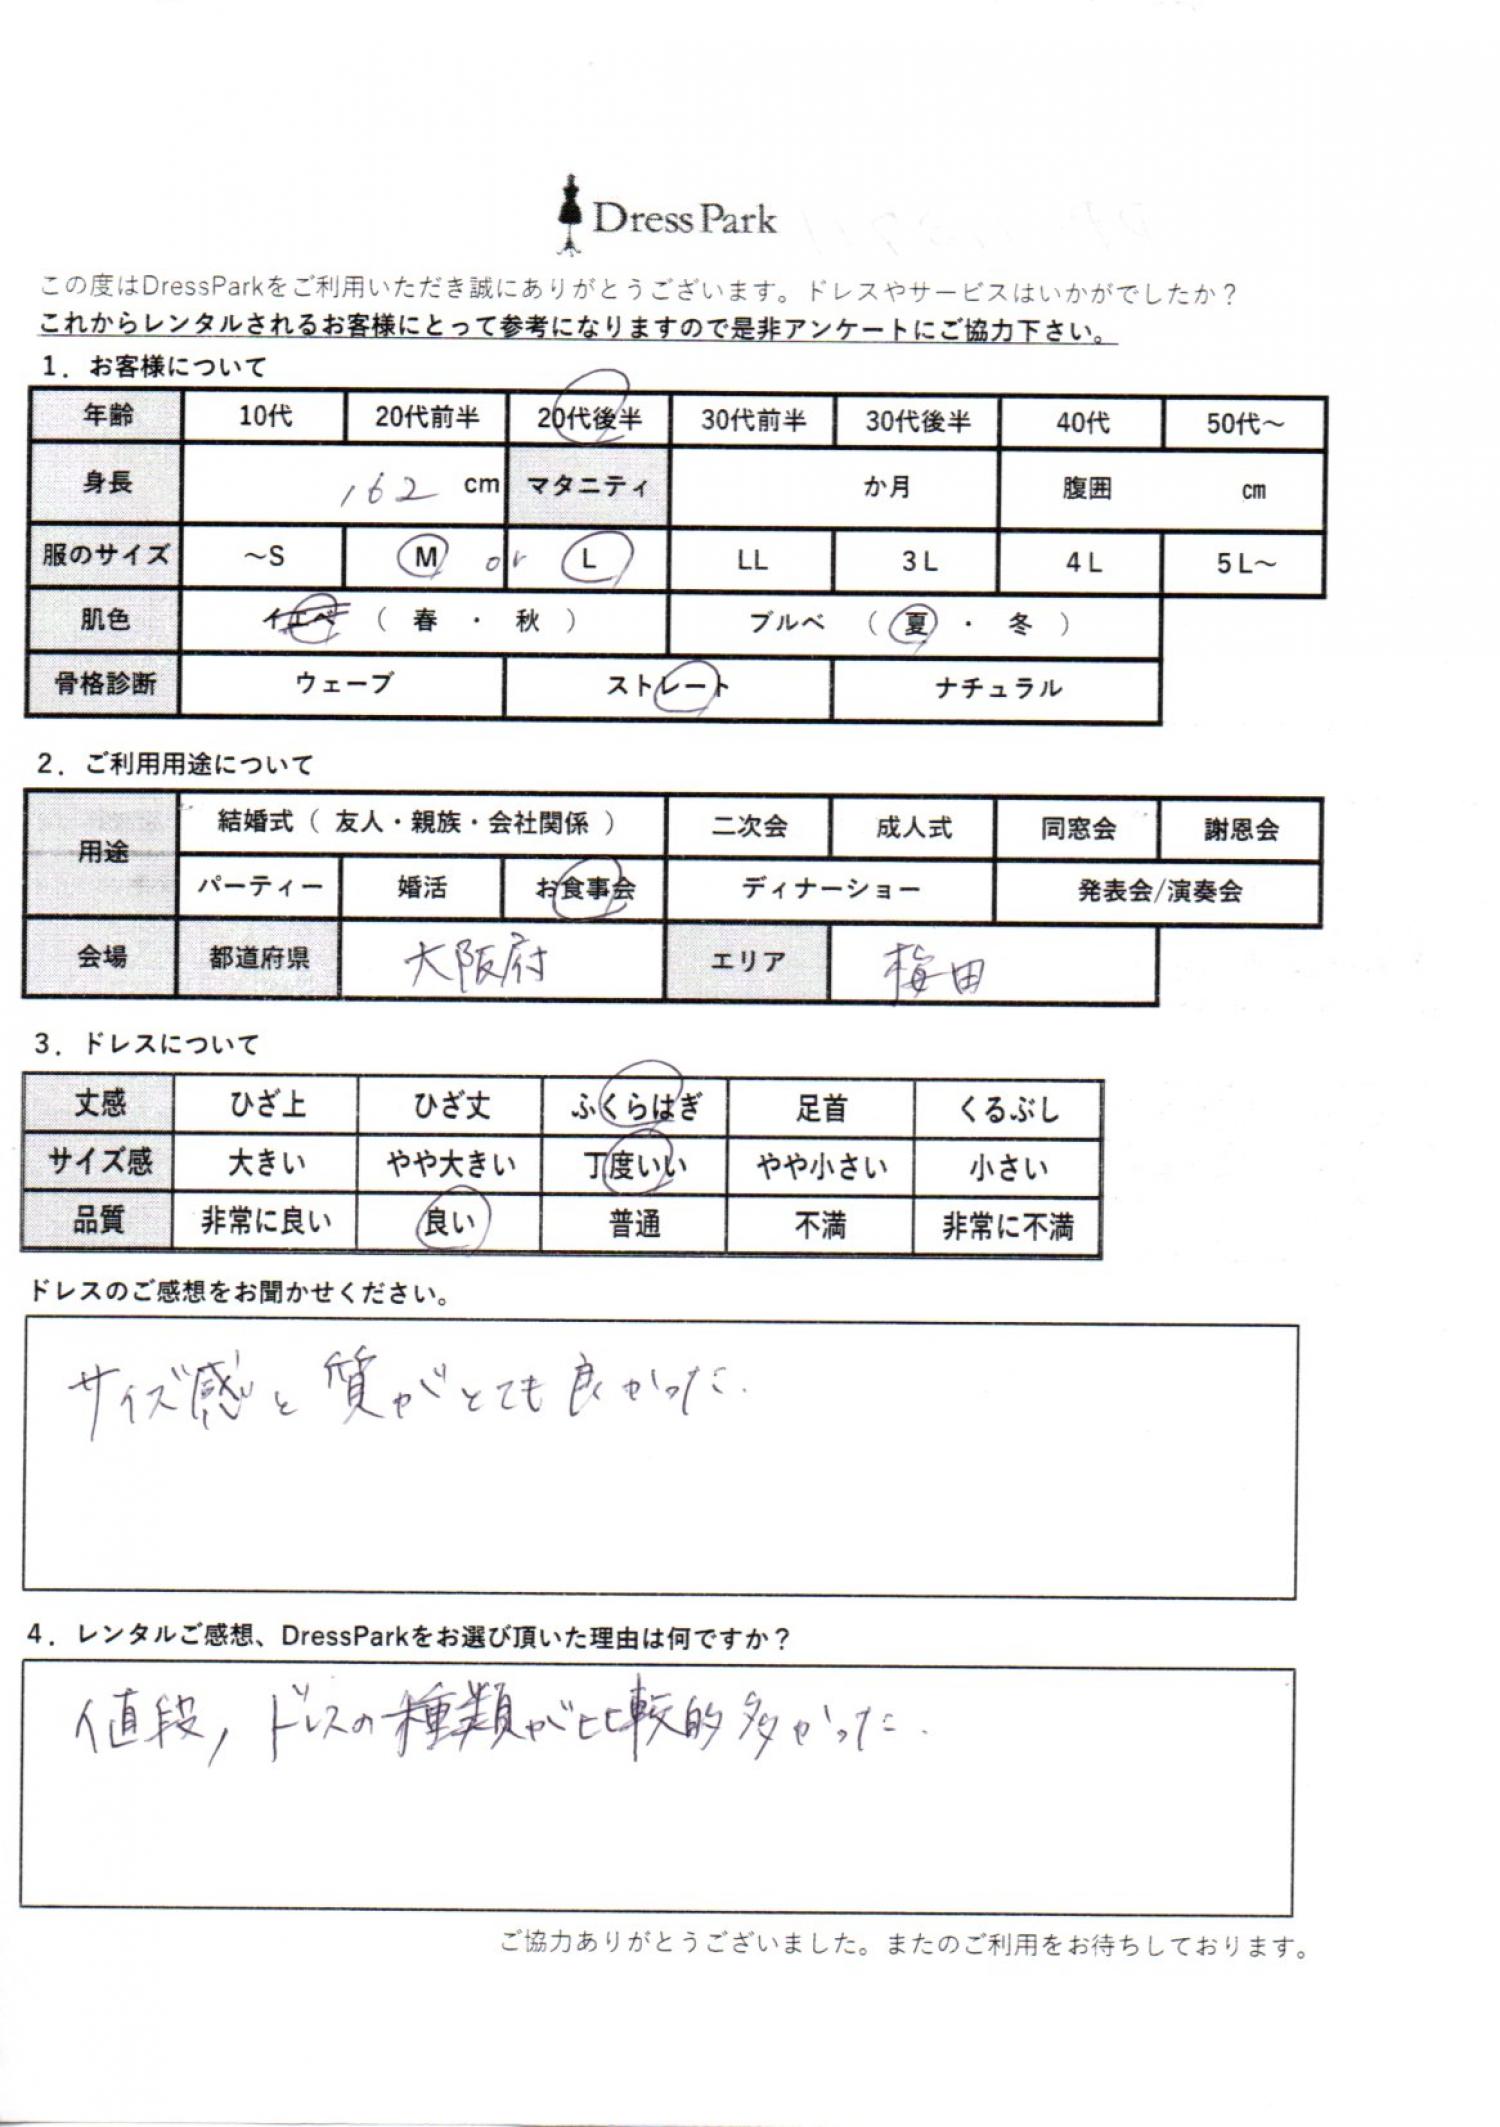 Dress Park
この度はDressParkをご利用いただき誠にありがとうございます。ドレスやサービスはいかがでしたか？
これからレンタルされるお客様にとって参考になりますので是非アンケートにご協力下さい。
1．お客様について
年齢 10代 20代前半 20代後半 30代前半 30代後半 40代 50代～
身長 162 cm マタニティ か月 腹囲 cm
服のサイズ ～S M or L LL 3L 4L 5L～
肌色 イエベ （ 春 ・ 秋 ） ブルベ （ 夏 ・ 冬 ）
骨格診断 ウェーブ ストレート ナチュラル
2．ご利用用途について
用途 結婚式（ 友人・親族・会社関係 ） 二次会 成人式 同窓会 謝恩会
パーティー 婚活 お食事会 ディナーショー 発表会/演奏会
会場 都道府県 大阪府 エリア 梅田
3．ドレスについて
丈感 ひざ上 ひざ丈 ふくらはぎ 足首 くるぶし
サイズ感 大きい やや大きい 丁度いい やや小さい 小さい
品質 非常に良い 良い 普通 不満 非常に不満
ドレスのご感想をお聞かせください。
サイズ感と質がとても良かった.
4．レンタルご感想、DressParkをお選び頂いた理由は何ですか？
値段, ドレスの種類が比較的多かった.
ご協力ありがとうございました。またのご利用をお待ちしております。